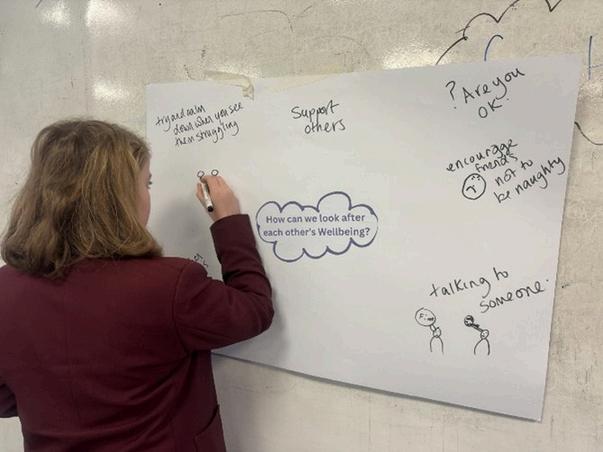 try and calm
down when you see
them struggling
Support
others
? Are you
OK.
encourage
friends
not to
be naughty
How can we look after
each other's Wellbeing?
talking to
someone.